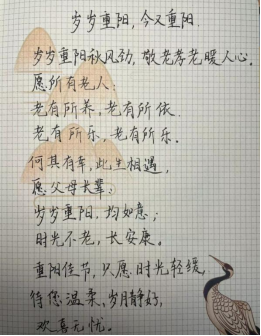 岁岁重阳,今又重阳.
岁岁重阳秋风劲,敬老孝老暖人心。
愿所有老人:
老有所养,老有所依.
老有所乐,老有所乐.
何其有幸,此生相遇,
愿父母长辈:
岁岁重阳,均如意;
时光不老,长安康。
重阳佳节,只愿时光轻缓,
待您温柔、岁月静好,
欢喜无忧。